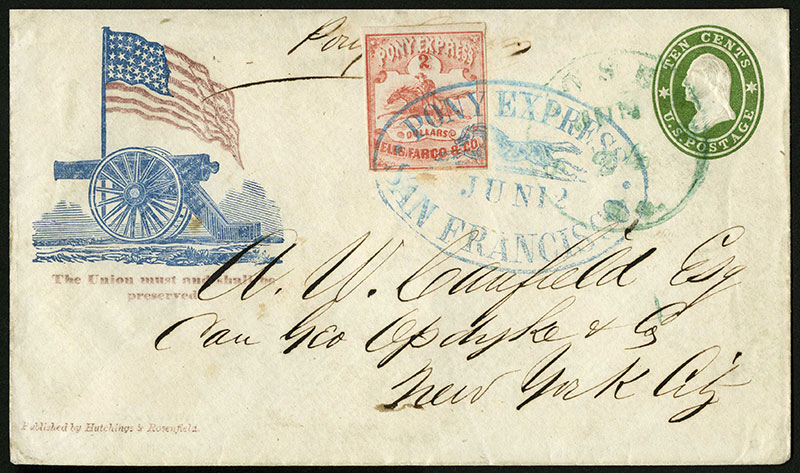 Pony Express
PONY EXPRESS
2
DOLLARS
WELLS, FARGO & CO
TEN CENTS
U.S. POSTAGE
PONY EXPRESS
JUN 12
SAN FRANCISCO
The Union must and shall be
preserved
A. W. Canfield Esq
Care Geo Opdyke & Co
New York City
Published by Hutchings & Rosenfield.